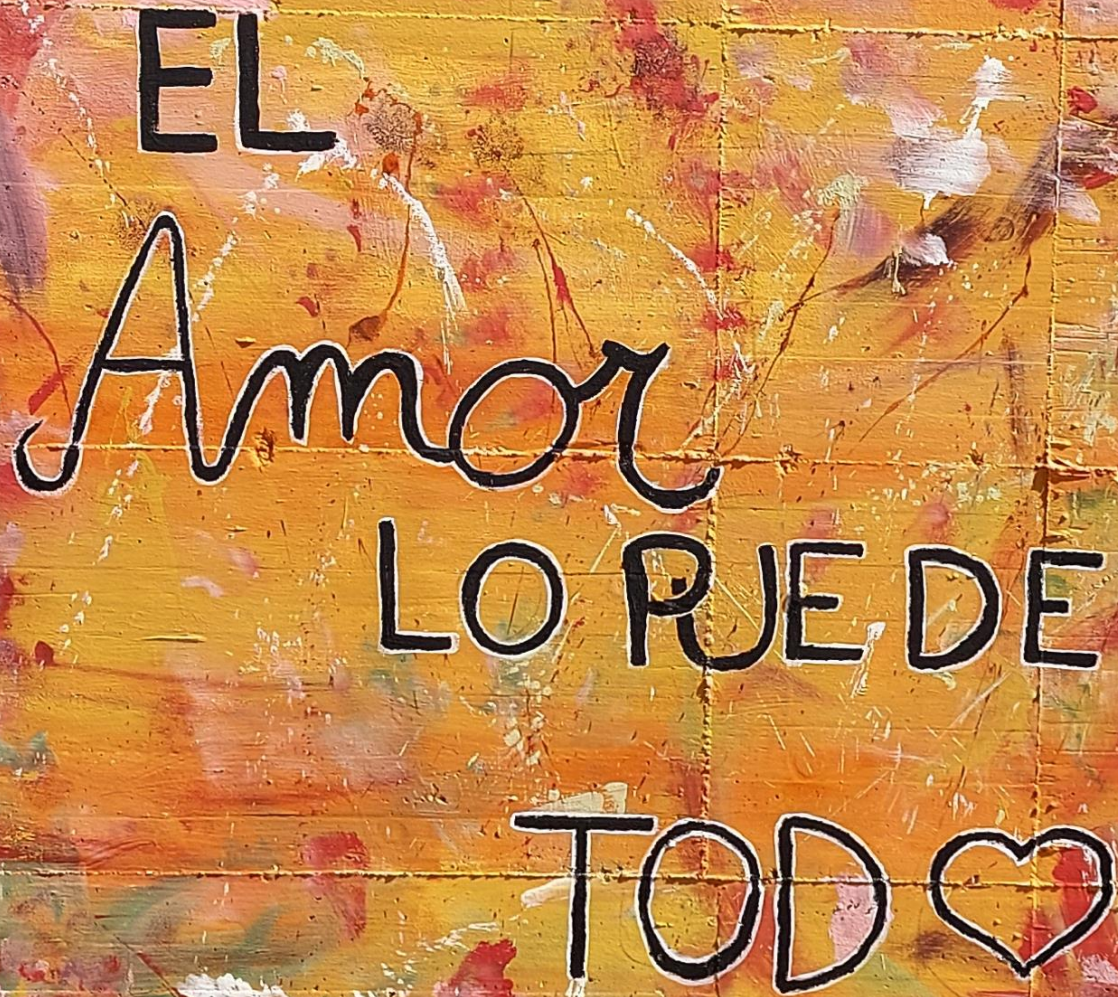 EL
Amor
LO PUEDE
TOD♡